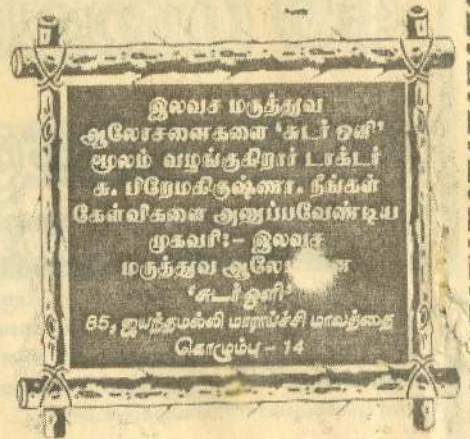 இலவச மருத்துவ
ஆலோசனைகளை 'சுடர் ஒளி'
மூலம் வழங்குகிறார் டாக்டர்
ச. பிறேமகிருஷ்ணா. நீங்கள்
கேள்விகளை அனுப்பவேண்டிய
முகவரி:- இலவச
மருத்துவ
'சுடர் ஒளி'
85, ஜயந்தமல்லி மாராய்ச்சி மாவத்தை
கொழும்பு - 14